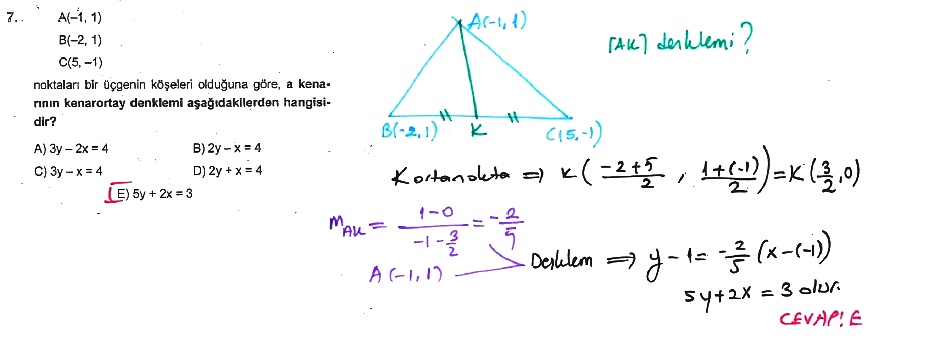 7. A(-1, 1)
B(-2, 1)
C(5, -1)
noktaları bir üçgenin köşeleri olduğuna göre, a kena-
rının kenarortay denklemi aşağıdakilerden hangisi-
dir?
A) 3y - 2x = 4 B) 2y - x = 4
C) 3y - x = 4 D) 2y + x = 4
E) 5y + 2x = 3
A(-1, 1)
[AK] denklemi?
B(-2, 1) K C(5, -1)
K ortanokta ⇒ K(-2+5/2, 1+(-1)/2) = K(3/2, 0)
m_AK = 1-0/-1-3/2 = -2/5
A(-1, 1)
Denklem ⇒ y - 1 = -2/5 (x-(-1))
5y+2x = 3 olur.
CEVAP: E